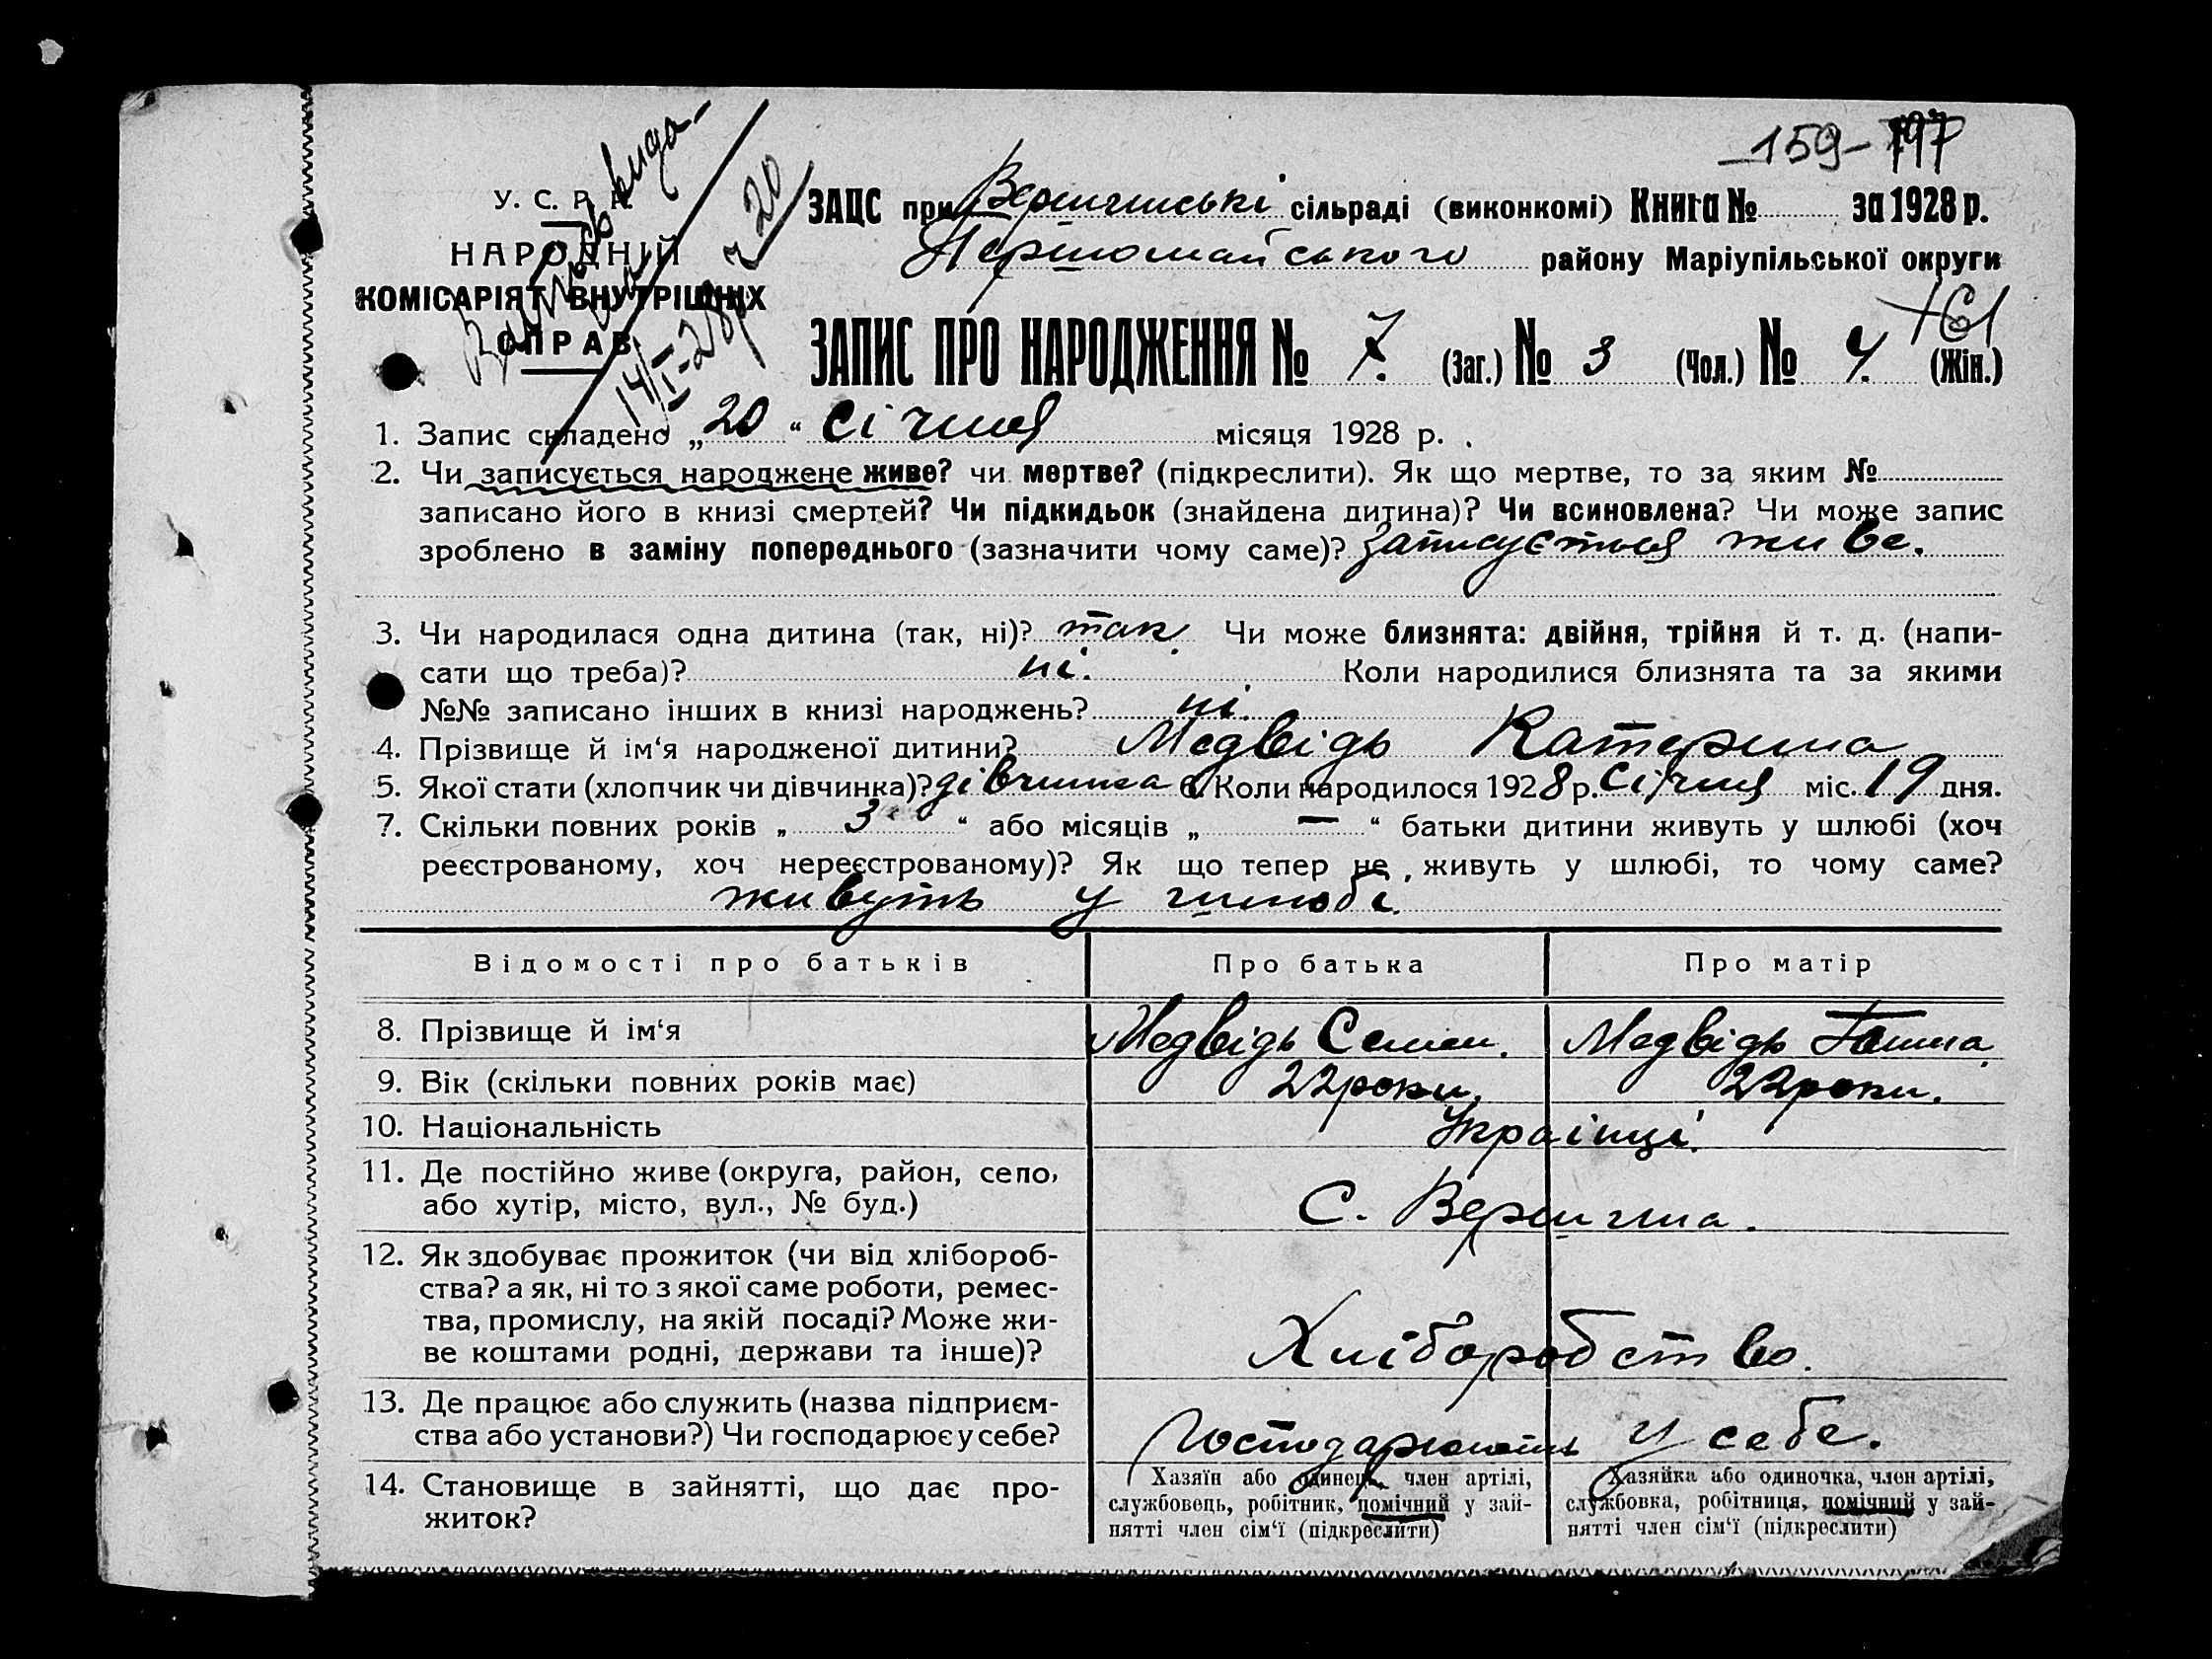 159-197
У. С. Р. Р.
НАРОДНІЙ
КОМІСАРІЯТ ВНУТРІШНІХ
СПРАВ
ЗАЦС при Вершинські сільраді (виконкомі) Книга № за 1928 р.
Першомайського району Маріупільської округи
ЗАПИС ПРО НАРОДЖЕННЯ № 7. (Заг.) № 3 (Чол.) № 4. (Жін.)
1. Запис складено „20“ січня місяця 1928 р.
2. Чи записується народжене живе? чи мертве? (підкреслити). Як що мертве, то за яким №
записано його в книзі смертей? Чи підкидьок (знайдена дитина)? Чи всиновлена? Чи може запис
зроблено в заміну попереднього (зазначити чому саме)? Записується живе.
3. Чи народилася одна дитина (так, ні)? так. Чи може близнята: двійня, трійня й т. д. (напи-
сати що треба)? ні. Коли народилися близнята та за якими
№№ записано інших в книзі народжень? ні.
4. Прізвище й ім‘я народженої дитини? Медвідь Катерина
5. Якої стати (хлопчик чи дівчинка)? дівчинка 6. Коли народилося 1928 р. січня міс. 19 дня.
7. Скільки повних років „ 3 “ або місяців „ — “ батьки дитини живуть у шлюбі (хоч
реєстрованому, хоч нереєстрованому)? Як що тепер не живуть у шлюбі, то чому саме?
живуть у шлюбі.
Відомості про батьків Про батька Про матір
8. Прізвище й ім‘я Медвідь Семен. Медвідь Ганна.
9. Вік (скільки повних років має) 22 роки. 22 роки.
10. Національність Українці.
11. Де постійно живе (округа, район, село,
або хутір, місто, вул., № буд.) С. Вершина.
12. Як здобуває прожиток (чи від хлібороб-
ства? а як, ні то з якої саме роботи, ремес-
тва, промислу, на якій посаді? Може жи-
ве коштами родні, держави та інше)? Хліборобство.
13. Де працює або служить (назва підприєм-
ства або установи?) Чи господарює у себе? Господарюють у себе.
14. Становище в зайнятті, що дає про-
житок?
Хазяїн або одинець, член артілі,
службовець, робітник, помічний у зай-
нятті член сім‘ї (підкреслити)
Хазяйка або одиночка, член артілі,
службовка, робітниця, помічний у зай-
нятті член сім‘ї (підкреслити)